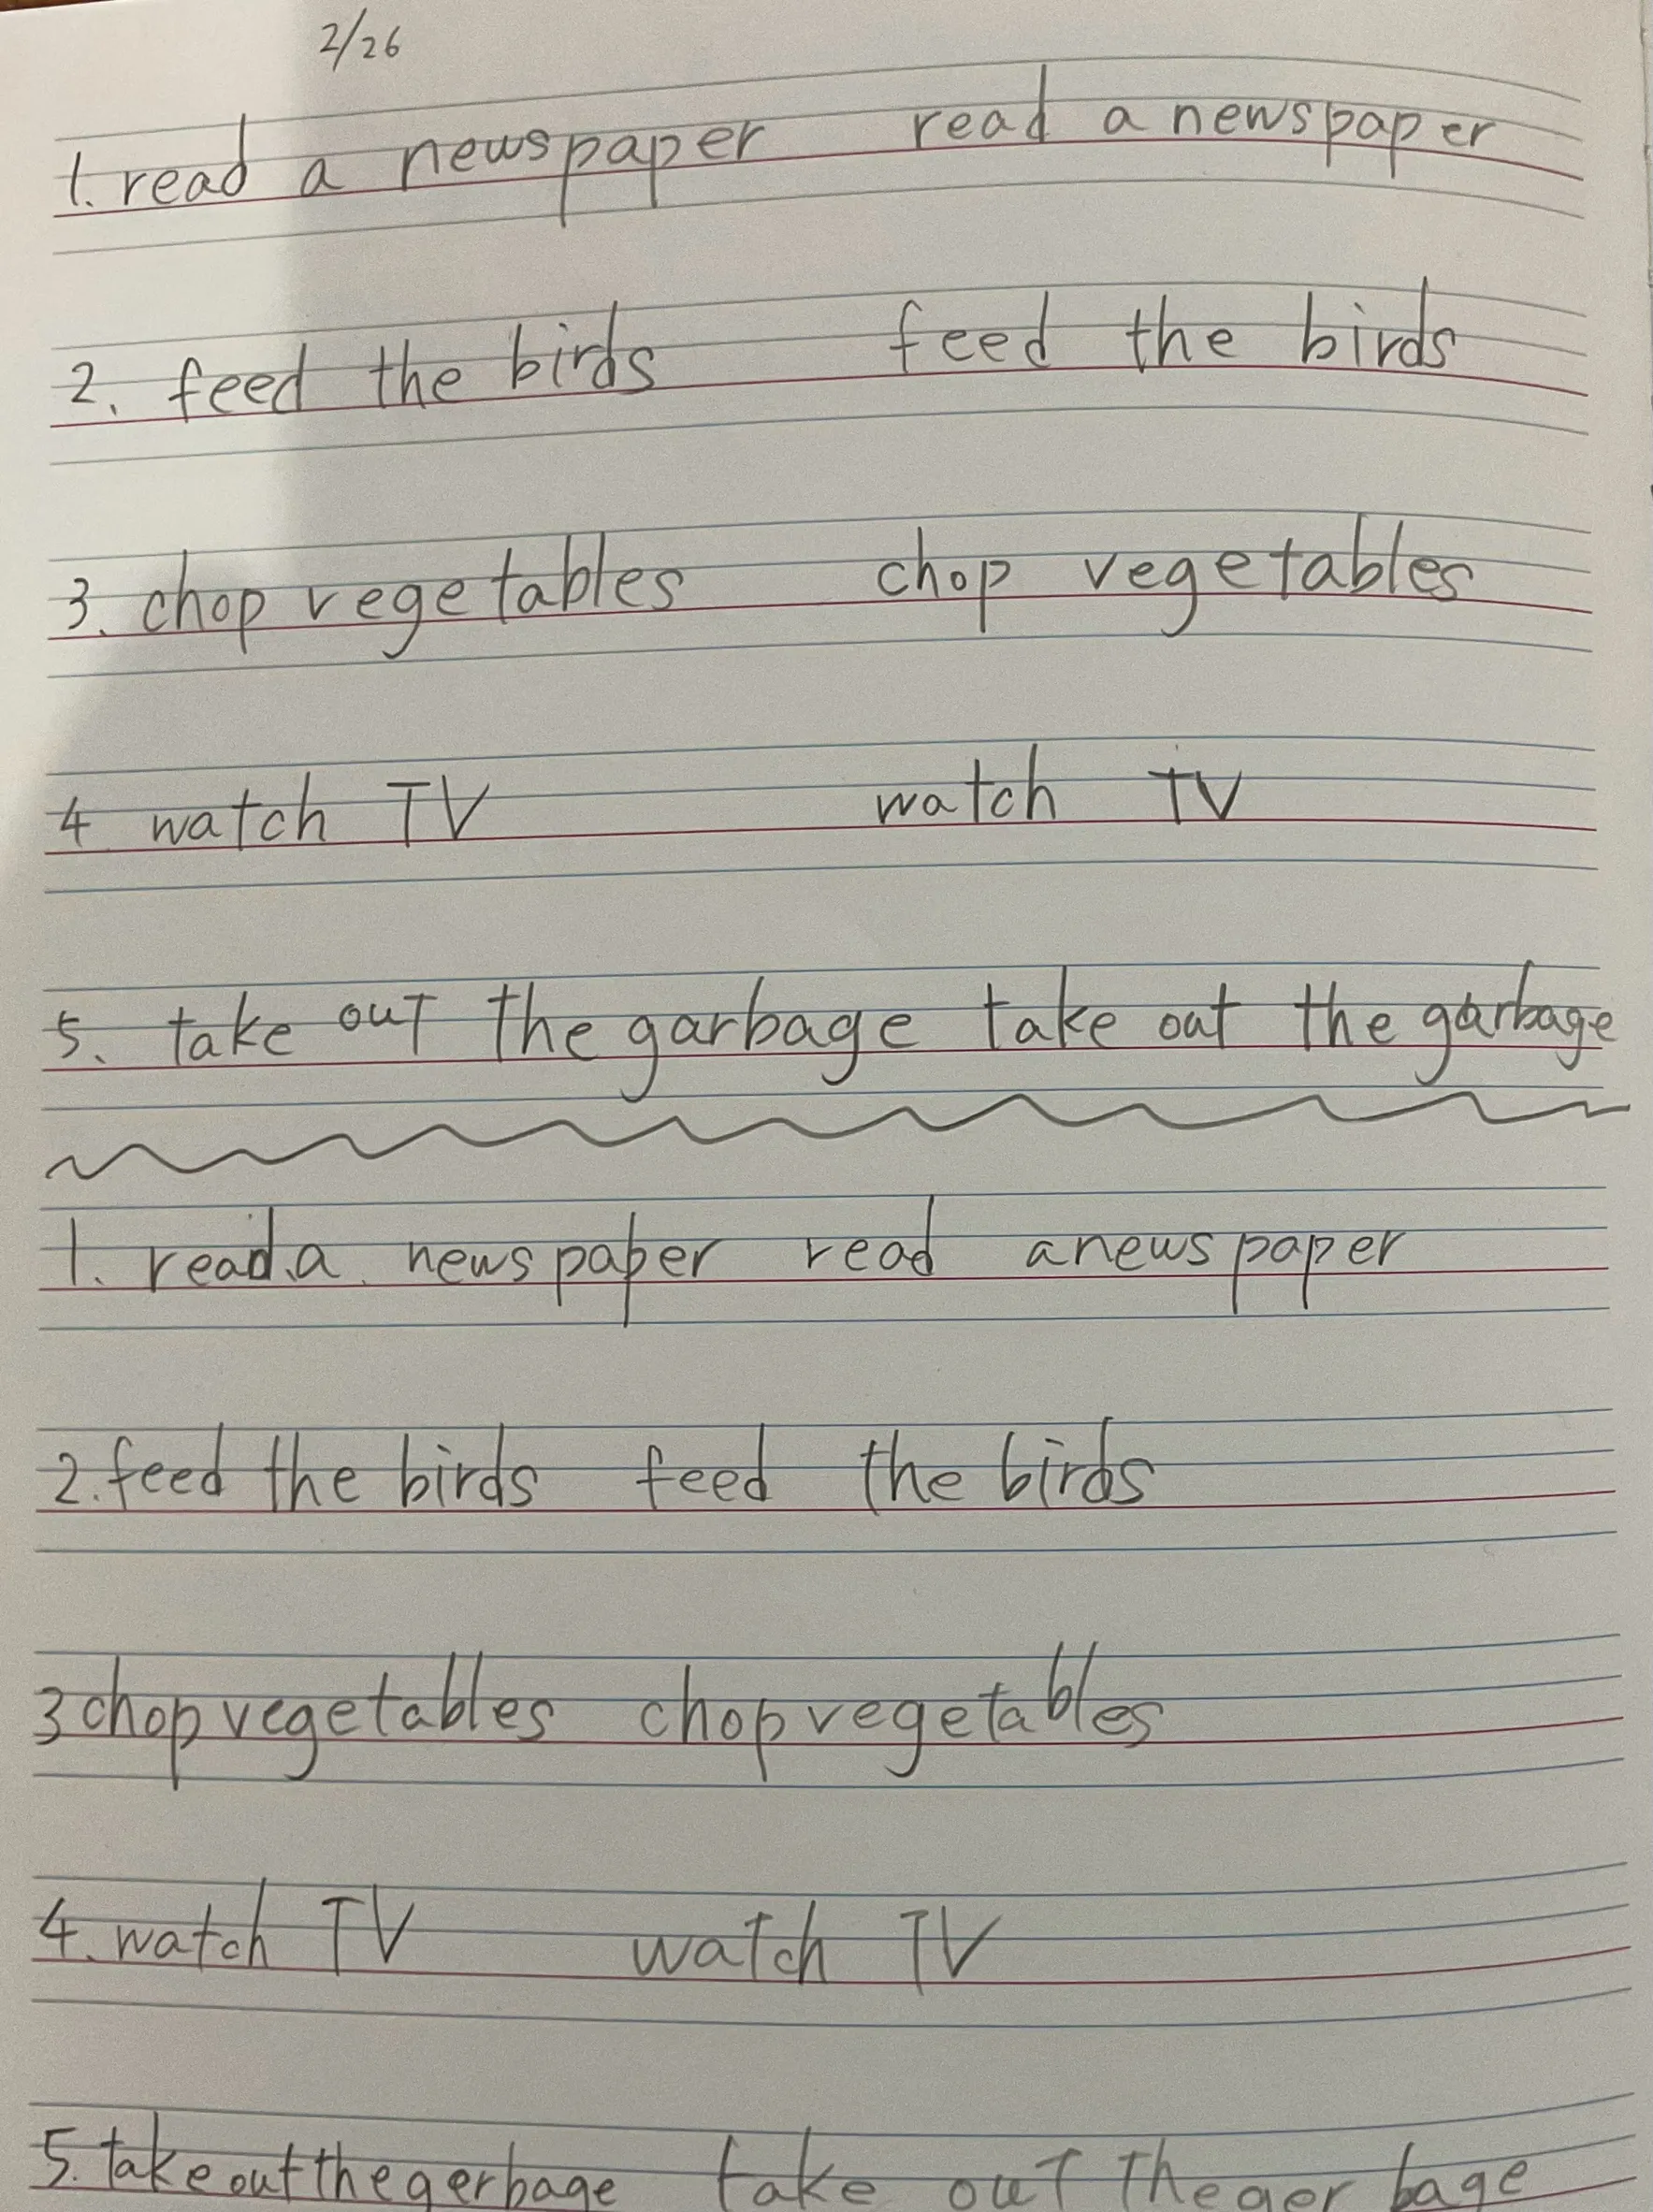 2/26
1. read a newspaper read a newspaper
2. feed the birds feed the birds
3. chop vegetables chop vegetables
4 watch TV watch TV
5. take out the garbage take out the garbage
1. read a newspaper read a newspaper
2. feed the birds feed the birds
3 chop vegetables chop vegetables
4. watch TV watch TV
5. take out the gerbage take out the gerbage